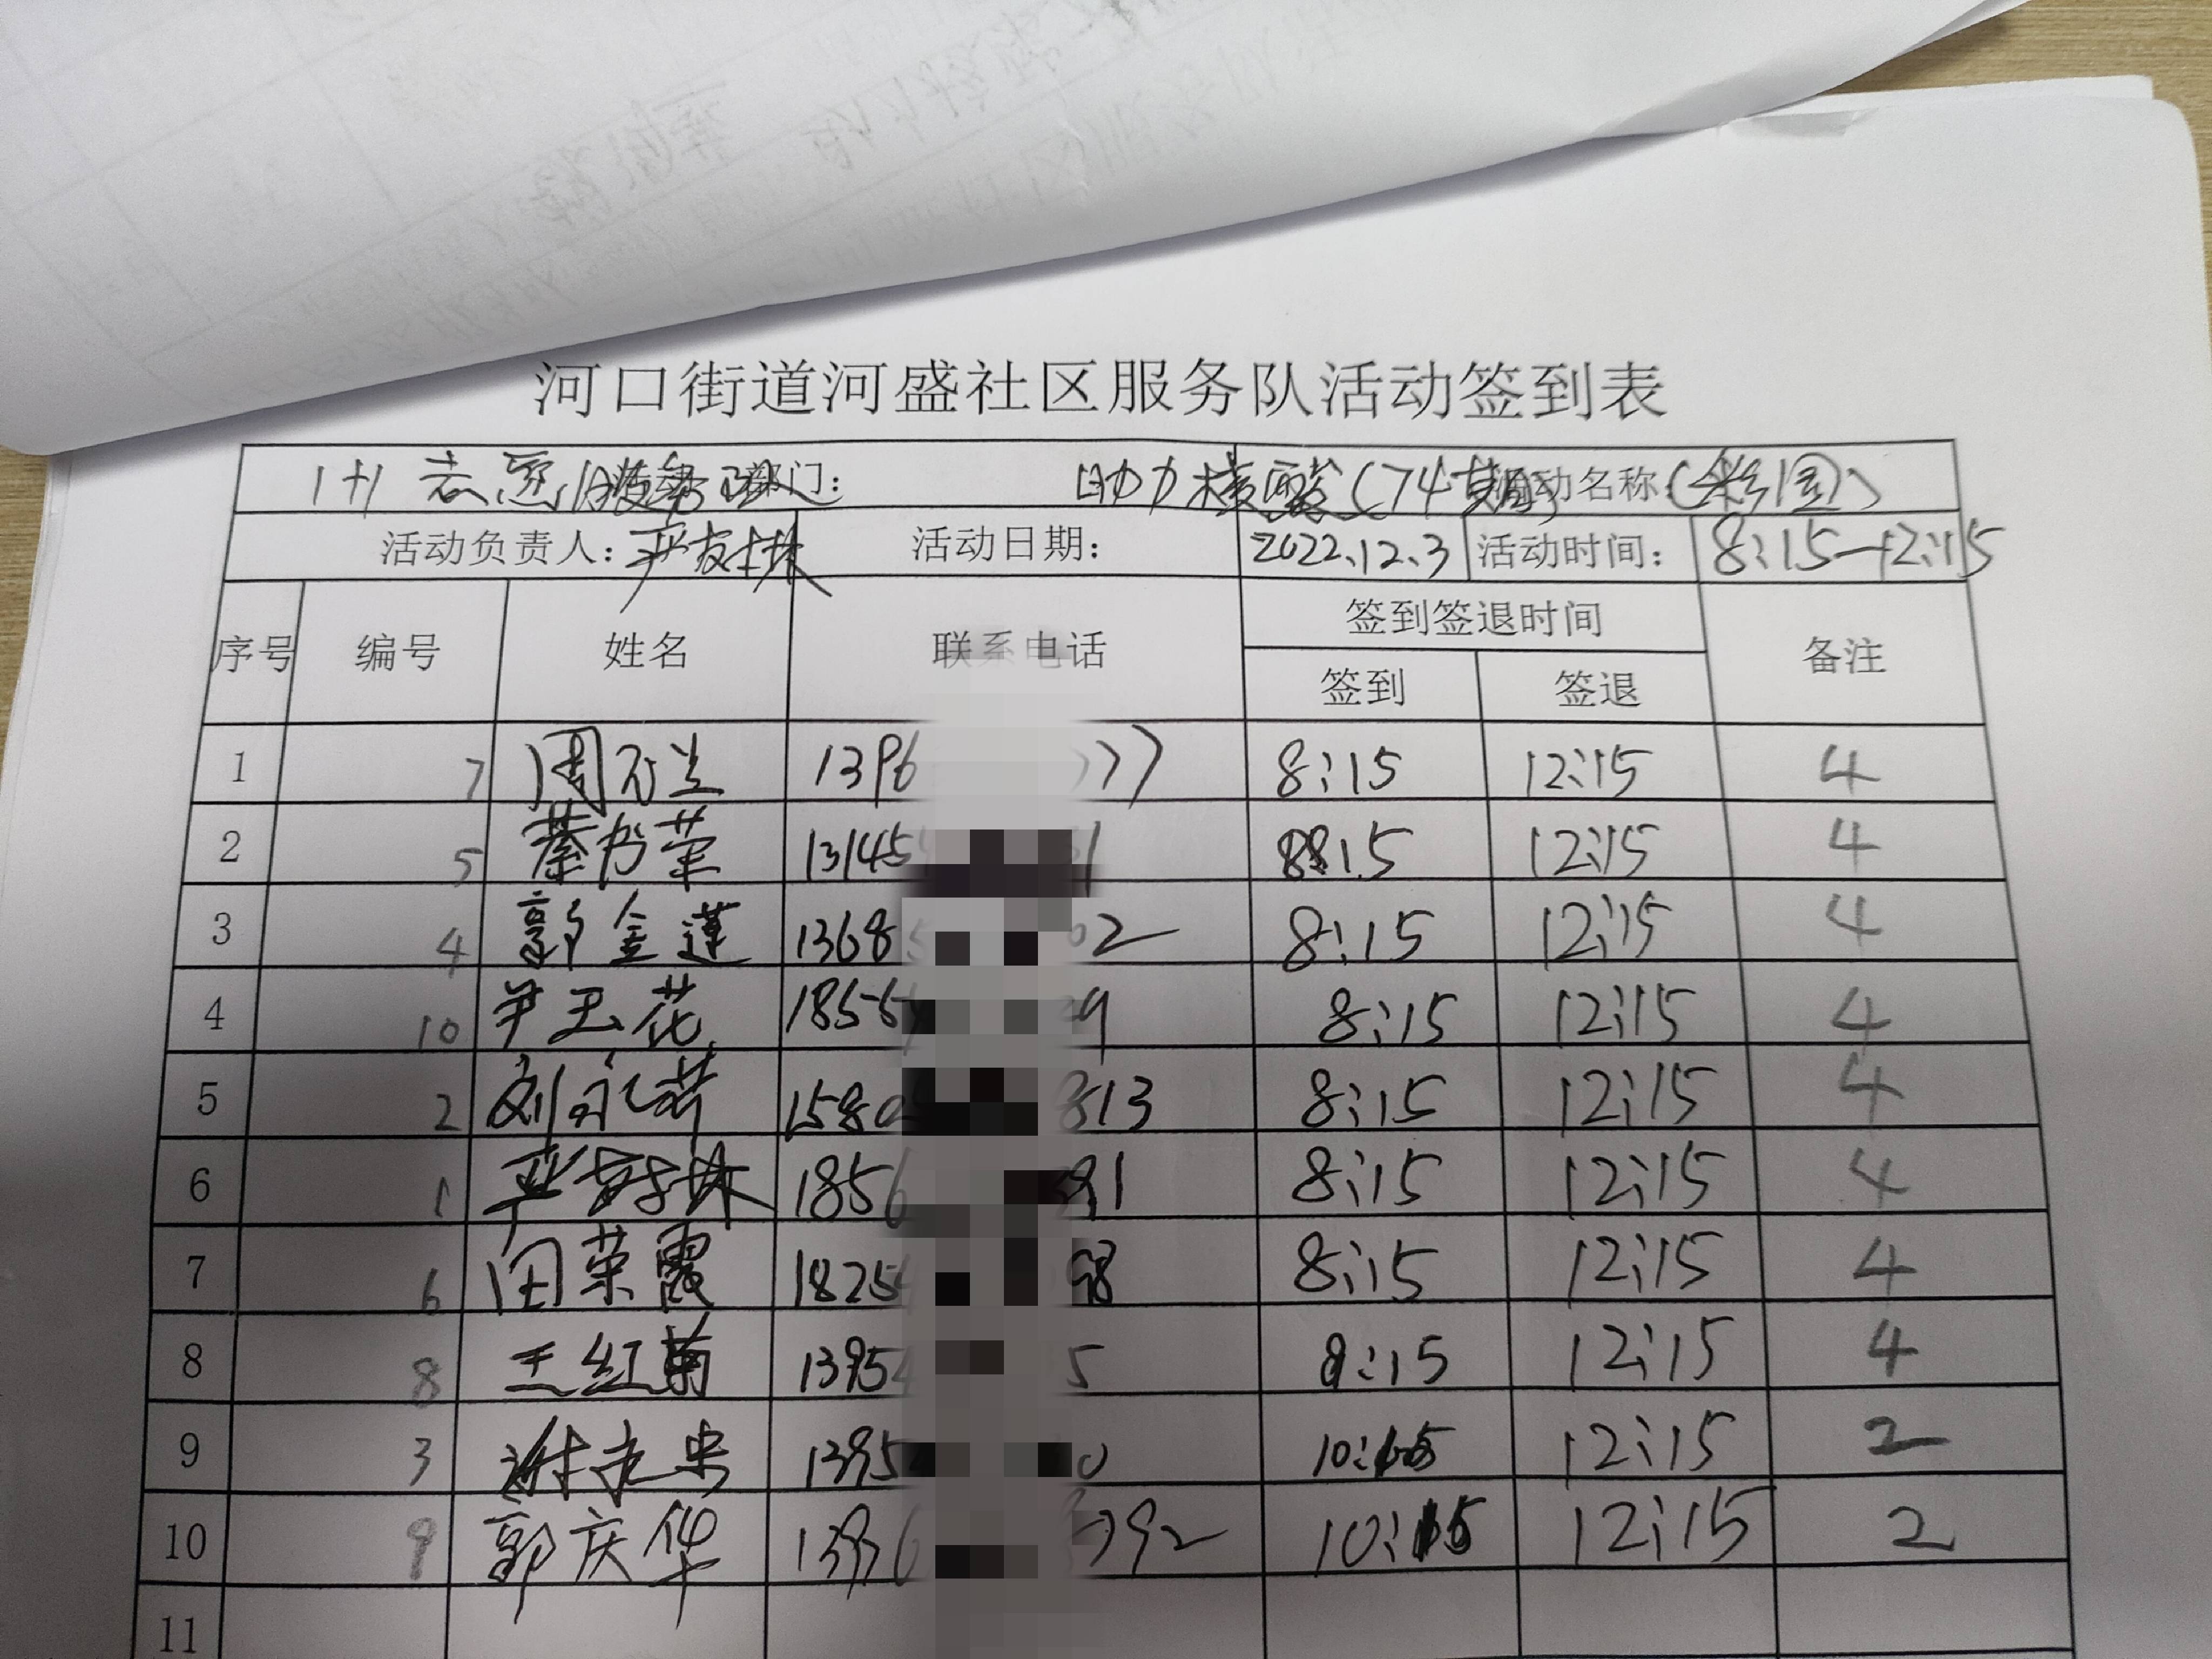 河口街道河盛社区服务队活动签到表
1+1志愿服务队 部门： 助力核酸（74期） 活动名称：（彩园）
活动负责人：严友玲 活动日期： 2022.12.3 活动时间： 8:15—12:15
序号 编号 姓名 联系电话 签到签退时间 备注
签到 签退
1 7 周 兰 1396 777 8:15 12:15 4
2 5 綦 荣 13145 1 8:15 12:15 4
3 4 郭金莲 1368 02 8:15 12:15 4
4 10 尹玉花 1855 9 8:15 12:15 4
5 2 刘永芹 1580 813 8:15 12:15 4
6 1 严 1856 91 8:15 12:15 4
7 6 田荣霞 18254 98 8:15 12:15 4
8 8 王红菊 13954 5 8:15 12:15 4
9 3 1395 0 10:15 12:15 2
10 9 郭庆华 1396 792 10:15 12:15 2
11